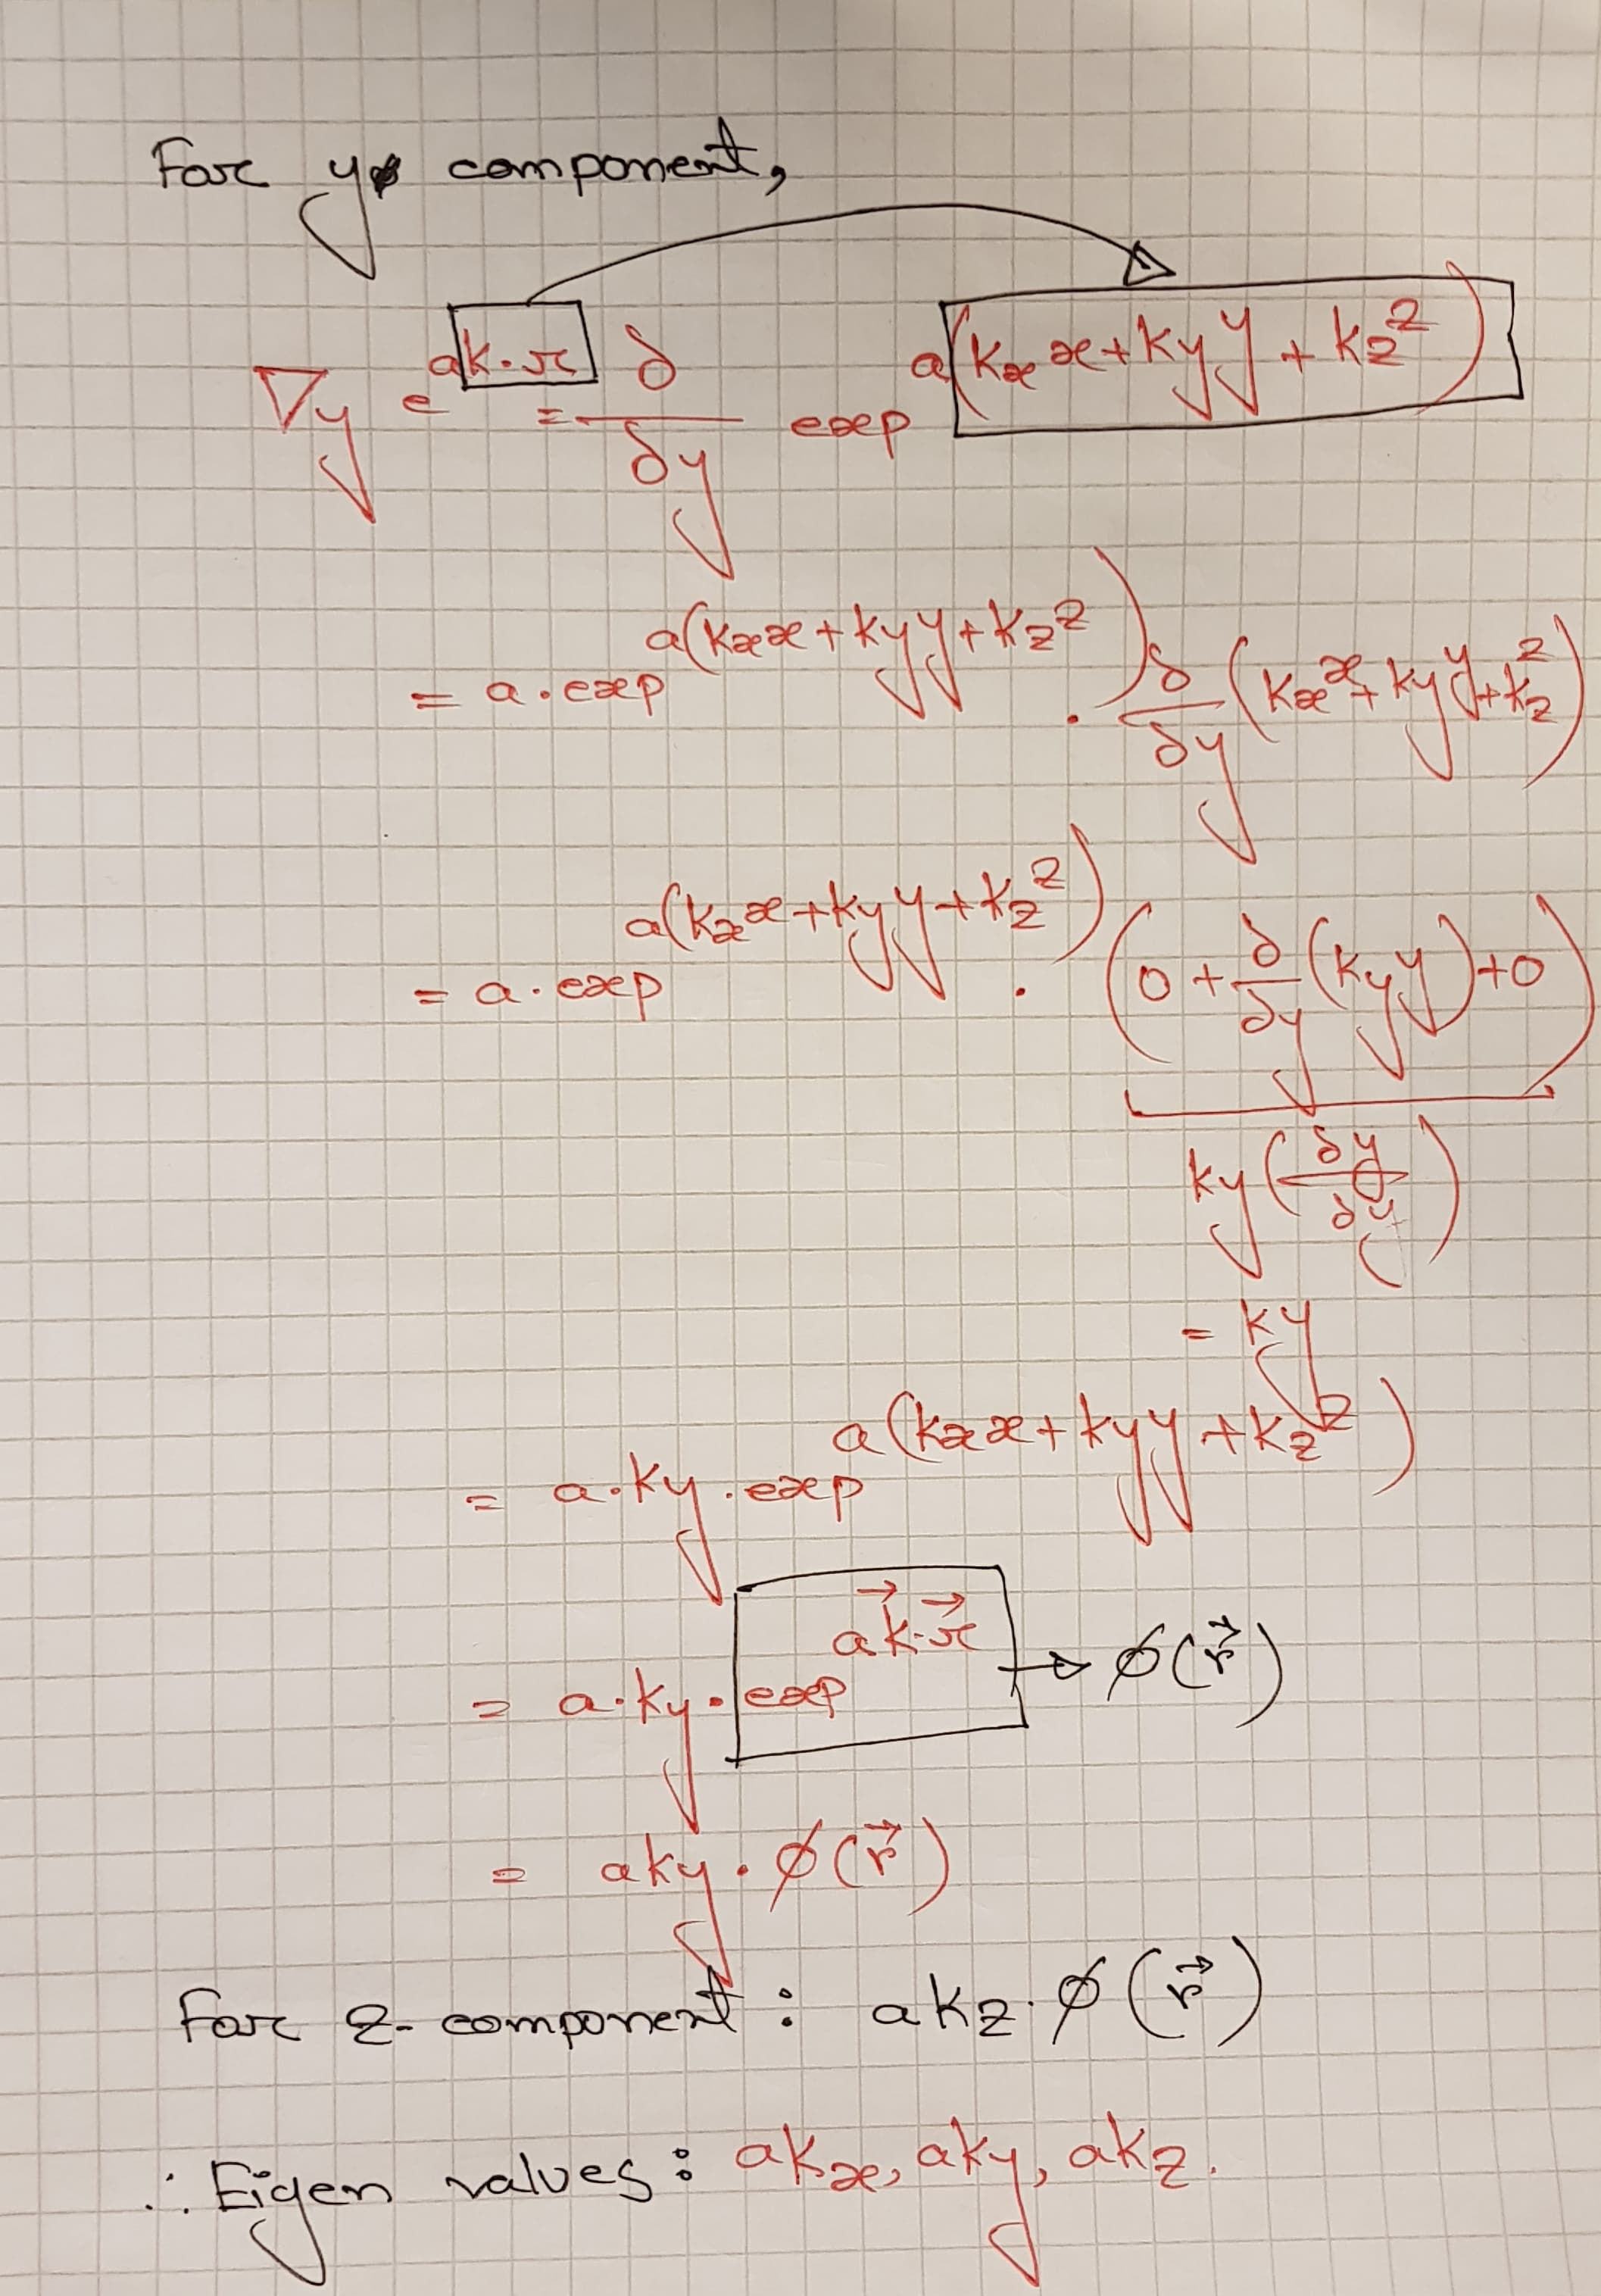 For y component,
∇y e^ak·r = δ/δy exp^a(kx x + ky y + kz z)
= a·exp^a(kx x + ky y + kz z) · δ/δy (kx x + ky y + kz z)
= a·exp^a(kx x + ky y + kz z) · (0 + δ/δy (ky y) + 0)
ky (δy/δy)
= ky
= a·ky·exp^a(kx x + ky y + kz z)
= a·ky·exp^a k⃗·r⃗ → ϕ(r⃗)
= aky·ϕ(r⃗)
For z-component : akz·ϕ(r⃗)
∴ Eigen values : akx, aky, akz.